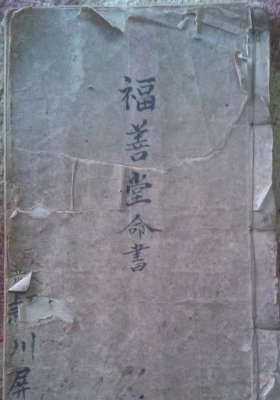 福善堂命書
川屏